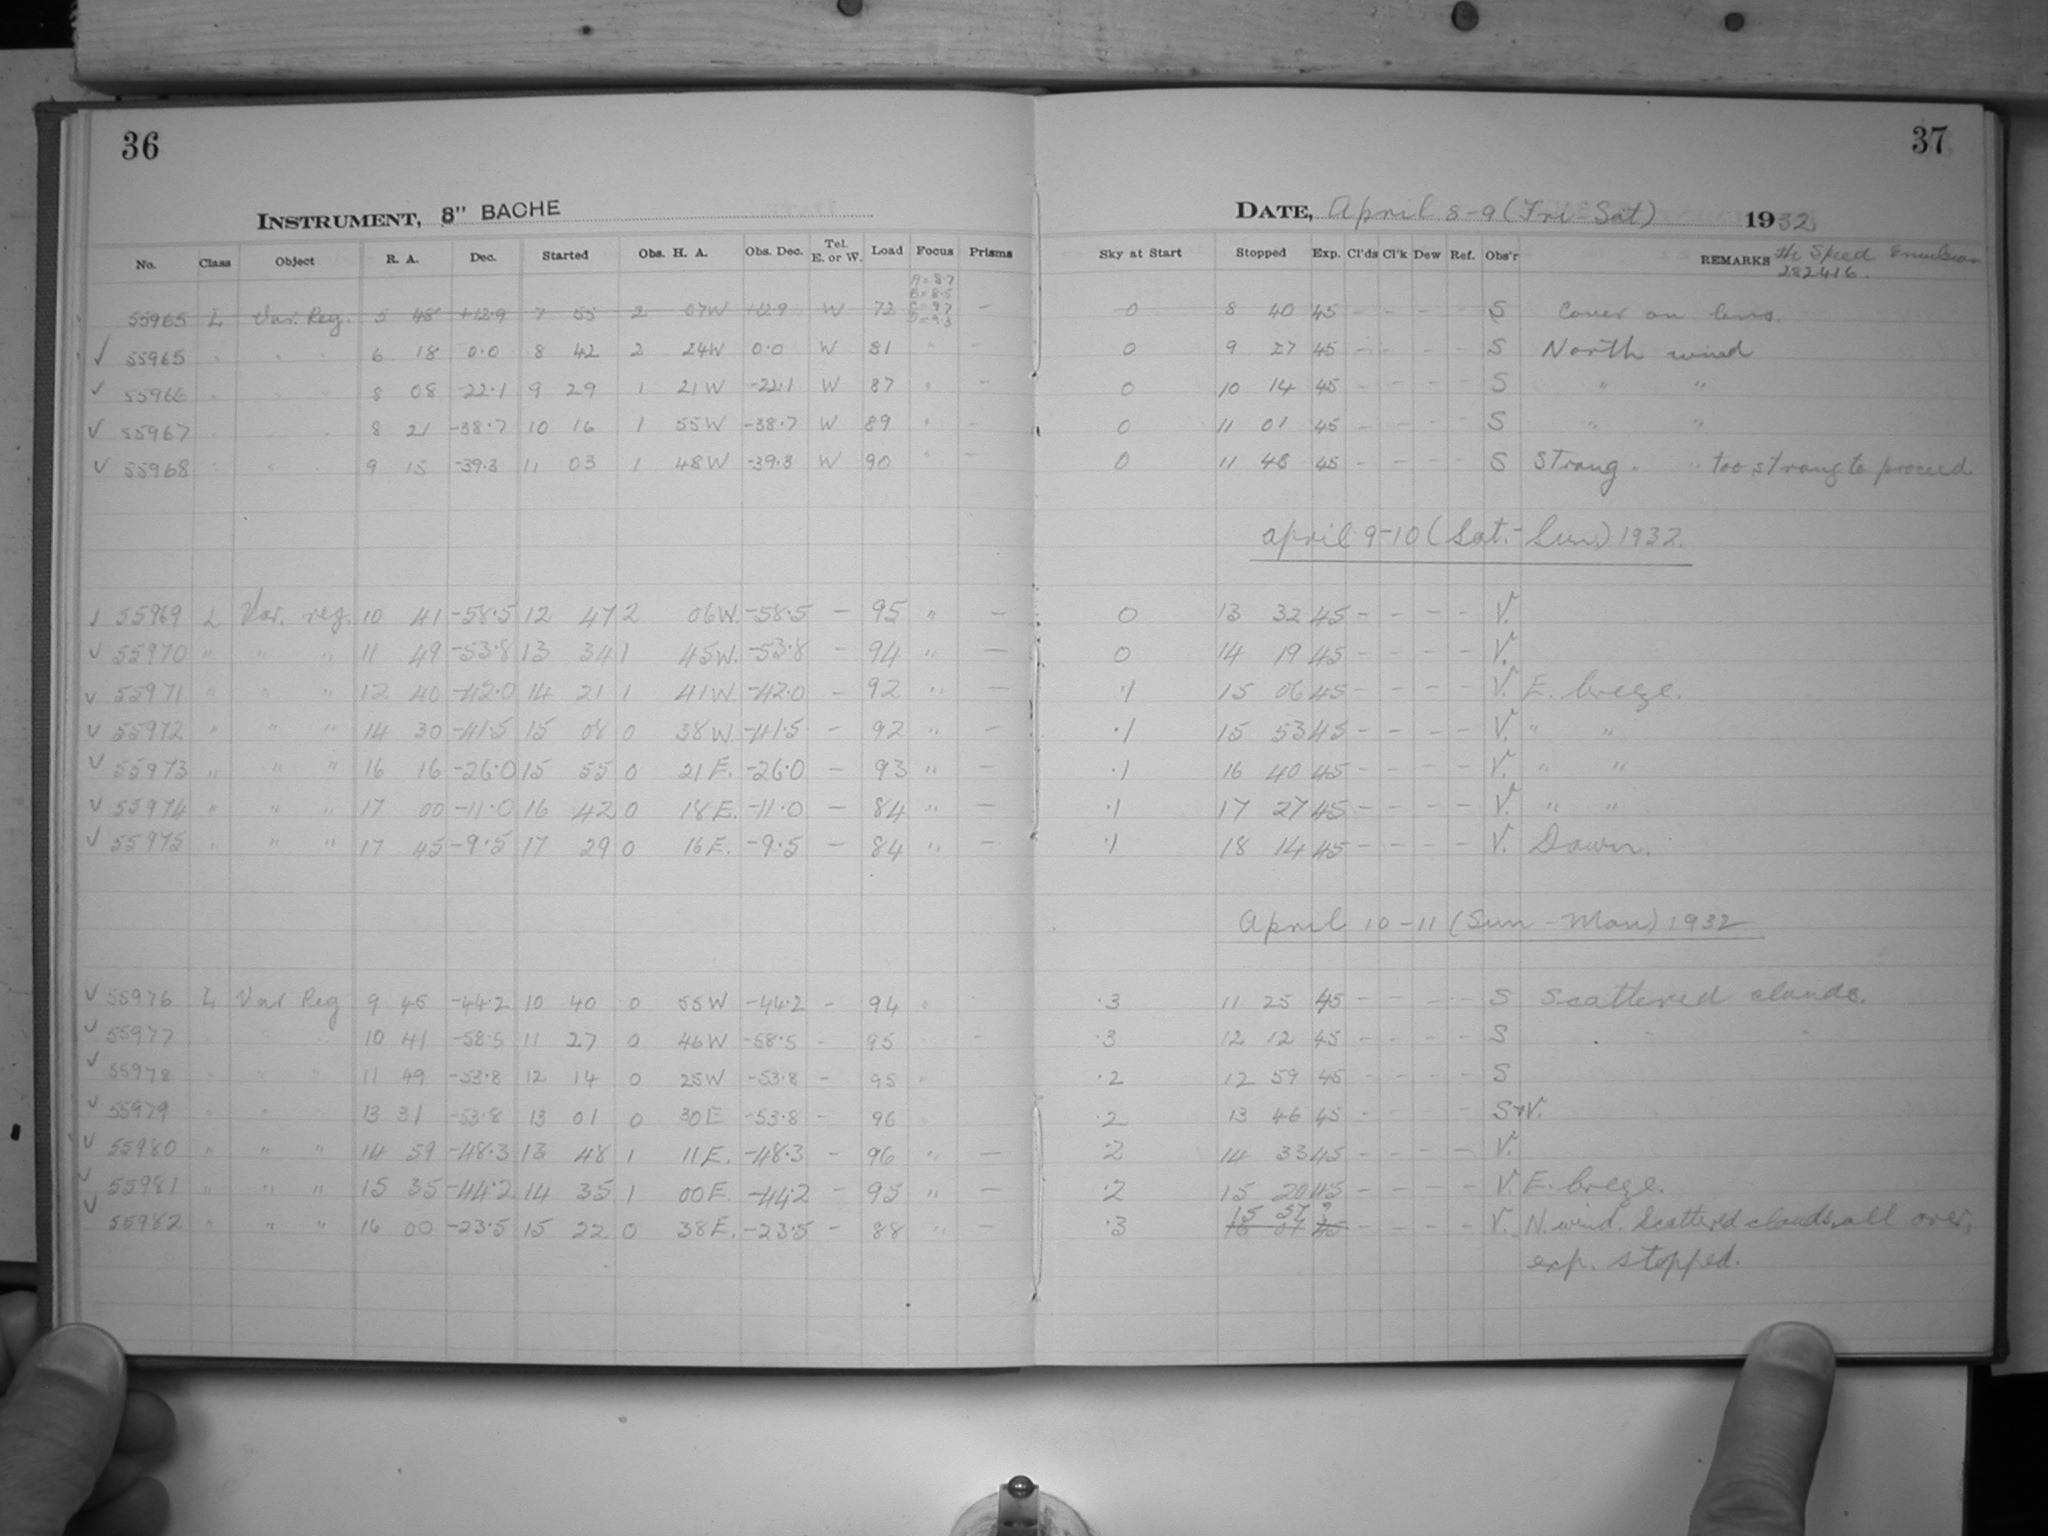 36
INSTRUMENT, 8" BACHE
No. Class Object R. A. Dec. Started Obs. H. A. Obs. Dec. Tel. E. or W. Load Focus Prisms
A = 8.7
B = 8.5
C = 9.7
D = 9.3
55965 L Var. Reg. 5 48 +12.9 7 55 2 07W +12.9 W 72 –
✓ 55965 " " " 6 18 0.0 8 42 2 24W 0.0 W 81 " –
✓ 55966 " " " 8 08 -22.1 9 29 1 21W -22.1 W 87 " –
✓ 55967 " " " 8 21 -38.7 10 16 1 55W -38.7 W 89 " –
✓ 55968 " " " 9 15 -39.3 11 03 1 48W -39.3 W 90 " –
✓ 55969 L Var. reg. 10 41 -58.5 12 47 2 06W. -58.5 – 95 " –
✓ 55970 " " " 11 49 -53.8 13 34 1 45W. -53.8 – 94 " –
✓ 55971 " " " 12 40 -42.0 14 21 1 41W. -42.0 – 92 " –
✓ 55972 " " " 14 30 -41.5 15 08 0 38W. -41.5 – 92 " –
✓ 55973 " " " 16 16 -26.0 15 55 0 21E. -26.0 – 93 " –
✓ 55974 " " " 17 00 -11.0 16 42 0 18E. -11.0 – 84 " –
✓ 55975 " " " 17 45 -9.5 17 29 0 16E. -9.5 – 84 " –
✓ 55976 L Var Reg 9 45 -44.2 10 40 0 55W -44.2 – 94 "
✓ 55977 " " " 10 41 -58.5 11 27 0 46W -58.5 - 95 " -
✓ 55978 " " " 11 49 -53.8 12 14 0 25W -53.8 – 95 "
✓ 55979 " " " 13 31 -53.8 13 01 0 30E -53.8 – 96 "
✓ 55980 " " " 14 59 -48.3 13 48 1 11E. -48.3 – 96 " –
✓ 55981 " " " 15 35 -44.2 14 35 1 00E. -44.2 – 95 " –
✓ 55982 " " " 16 00 -23.5 15 22 0 38E. -23.5 – 88 " –
37
DATE, April 8-9 (Fri-Sat) 1932
Sky at Start Stopped Exp. Cl'ds Cl'k Dew Ref. Obs'r REMARKS Hi Speed Emulsion
282416.
0 8 40 45 - - - - S Cover on lens.
0 9 27 45 - - - - S North wind
0 10 14 45 - - - - S " "
0 11 01 45 - - - - S " "
0 11 48 45 - - - - S Strong " " too strong to proceed
April 9-10 (Sat.-Sun.) 1932.
0 13 32 45 - - - - V.
0 14 19 45 - - - - V.
.1 15 06 45 - - - - V. E. breeze.
.1 15 53 45 - - - - V. " "
.1 16 40 45 - - - - V. " "
.1 17 27 45 - - - - V. " "
.1 18 14 45 - - - - V. Dawn.
April 10-11 (Sun-Mon) 1932
.3 11 25 45 - - - - S Scattered clouds.
.3 12 12 45 - - - - S " "
.2 12 59 45 - - - - S
.2 13 46 45 - - - - S+V.
.2 14 33 45 - - - - V.
.2 15 20 45 - - - - V. E. breeze.
15 57
.3 - - - - V. N. wind. Scattered clouds all over,
exp. stopped.